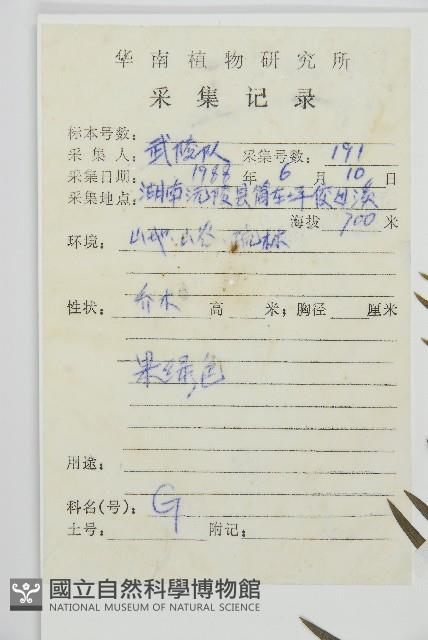 华南植物研究所
采集记录
标本号数：
采集人：武陵队 采集号数：191
采集日期：1988年6月10日
采集地点：湖南沅陵县筒车坪
海拔 700 米
环境：山地、山谷、疏林
性状：乔木 高 米；胸径 厘米
果绿色
用途：
科名(号)：G
土号： 附记：
國立自然科學博物館
NATIONAL MUSEUM OF NATURAL SCIENCE